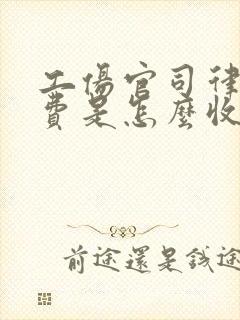 工傷官司律
費是怎麼收
前途還是錢途